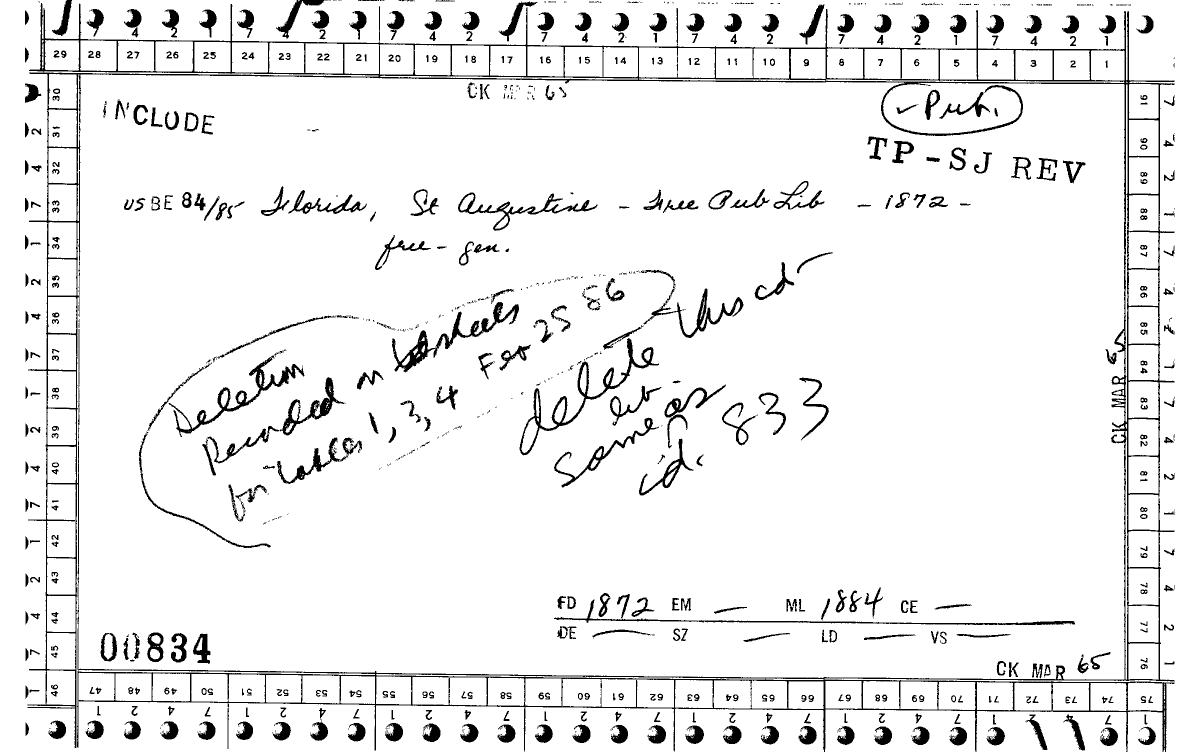 7 4 2 1 7 4 2 1 7 4 2 1 7 4 2 1 7 4 2 1 7 4 2 1 7 4 2 1
29 28 27 26 25 24 23 22 21 20 19 18 17 16 15 14 13 12 11 10 9 8 7 6 5 4 3 2 1
CK MAR 65
INCLUDE
✓ Pub.
TP-SJ REV
USBE 84/85 Florida, St Augustine - Free Pub Lib - 1872 -
free - gen.
Deletion
Recorded on worksheets
for Tables 1, 3, 4 Feb 25 86
delete this cd -
lib
same as
id. 833
FD 1872 EM — ML 1884 CE —
DE — SZ — LD — VS —
00834
CK MAR 65
CK MAR 65
30 31 32 33 34 35 36 37 38 39 40 41 42 43 44 45 46
91 90 89 88 87 86 85 84 83 82 81 80 79 78 77 76
47 48 49 50 51 52 53 54 55 56 57 58 59 60 61 62 63 64 65 66 67 68 69 70 71 72 73 74 75